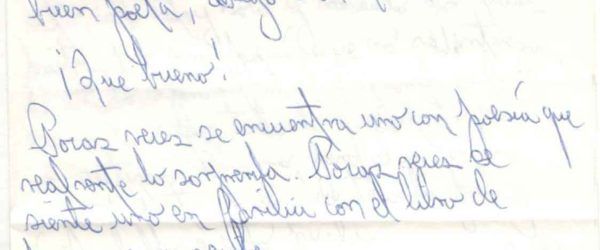 buen poeta,
¡Que bueno!
Pocas veces se encuentra uno con poesía que
realmente lo sorprenda. Pocas veces se
siente uno en familia con el libro de